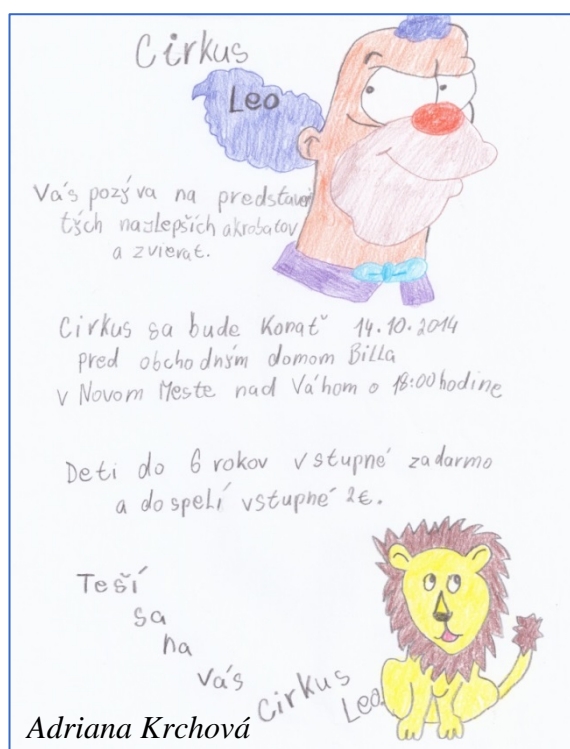 Cirkus
Leo
Vás pozýva na predstaven
tých najlepších akrobatov
a zvierat.
Cirkus sa bude Konať 14.10.2014
pred obchodným domom Billa
v Novom Meste nad Váhom o 18:00 hodine
Deti do 6 rokov vstupné zadarmo
a dospelí vstupné 2€.
Teší
sa
na
vás
Cirkus
Leo.
Adriana Krchová